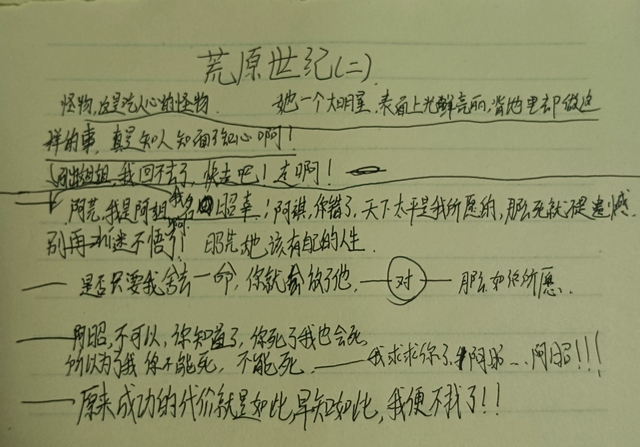 荒原世纪(二)
怪物,这是吃人心的怪物. 她一个大明星,表面上光鲜亮丽,背地里却做这
样的事,真是知人知面不知心啊!
阿姐,我回不去了,快走吧!走啊!
阿荒,我是阿姐啊 我名昭幸!阿祺,你错了,天下太平是我所愿的,那么死就不是遗憾
别再执迷不悟了! 昭先她该有自己的人生.
是否只要我舍去一命,你就会放了他,——对—— 那么如你所愿.
阿昭,不可以,你知道了,你死了我也会死
所以为了我你不能死,不能死,——我求求你了,阿昭...阿昭!!!
原来成功的代价就是如此,早知如此,我便不找了!!